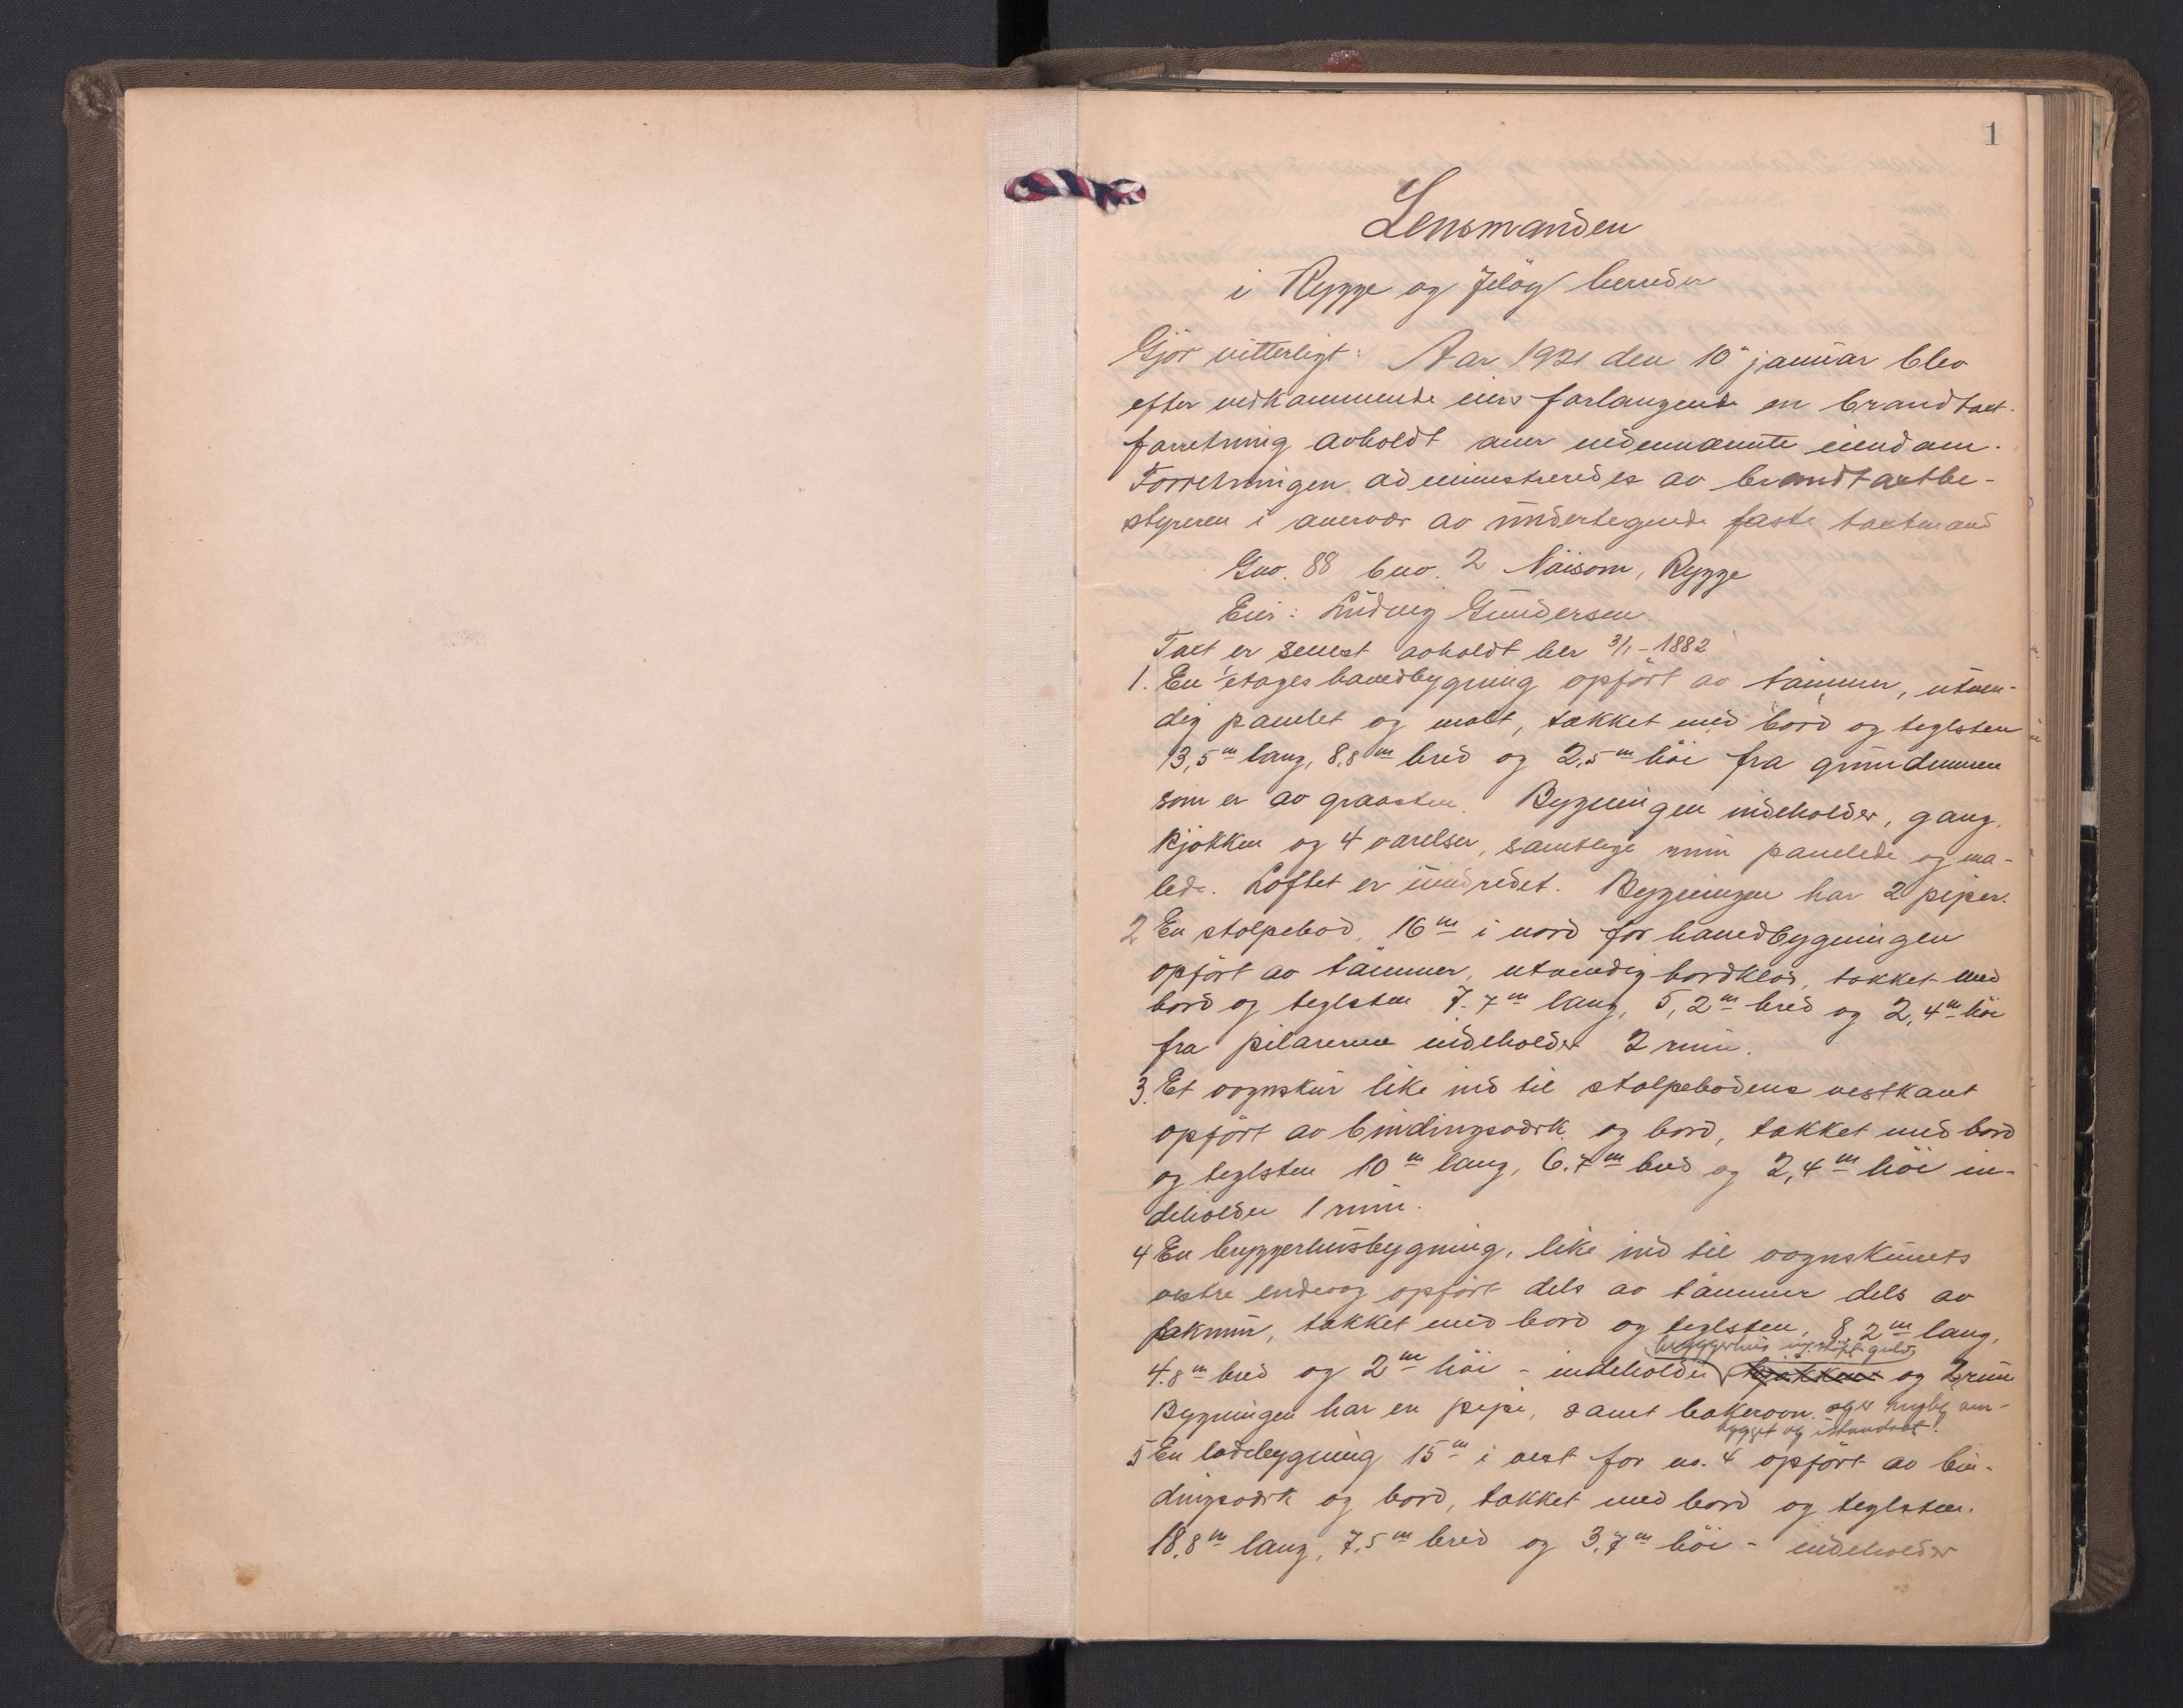 1
Lensmanden
i Rygge og Jeløy herreder
Gjør vitterligt: Aar 1921 den 10 januar blev
efter vedkommende eiers forlangende en brandtaxt-
forretning avholdt over nedennævnte eiendom.
Forretningen administreredes av brandtaxtbe-
styreren i overvær av undertegnede faste taxtmænd
Gno. 88 bno. 2 Naisom, Rygge
Eier: Ludvig Gundersen.
Taxt er senest avholdt her 3/1-1882
1. En 1 etages hovedbygning opført av tømmer, utven-
dig panelet og malt, tækket med bord og teglsten
13,5 m lang, 8.8 m bred og 2,5 m høi fra grundmuren
som er av graasten. Bygningen indeholder, gang,
kjøkken og 4 værelser, samtlige rum panelede og ma-
lede. Loftet er uindredet. Bygningen har 2 piper.
2 En stolpebod, 16 m i nord for hovedbygningen
opført av tømmer, utvendig bordklæd, tækket med
bord og teglsten 7.7 m lang, 5,2 m bred og 2,4 m høi
fra pilarerne indeholder 2 rum.
3. Et vognskur like ind til stolpebodens vestkant
opført av bindingsverk og bord, tækket med bord
og teglsten 10 m lang, 6.7 m bred og 2,4 m høi in-
deholder 1 rum.
4 En bryggerhusbygning, like ind til vognskurets
vestre endevæg opført dels av tømmer dels av
sakmur, tækket med bord og teglsten, 8.2 m lang,
bryggerhus m. støpt gulv
4.8 m bred og 2 m høi - indeholder kjøkken og 2 rum
Bygningen har en pipe, samt bakerovn og er nylig om-
bygget og istandsat.
5 En ladebygning 15 m i vest for no. 4 opført av bin-
dingsverk og bord, tækket med bord og teglsten.
18,8 m lang, 7.5 m bred og 3,7 m høi - indeholder